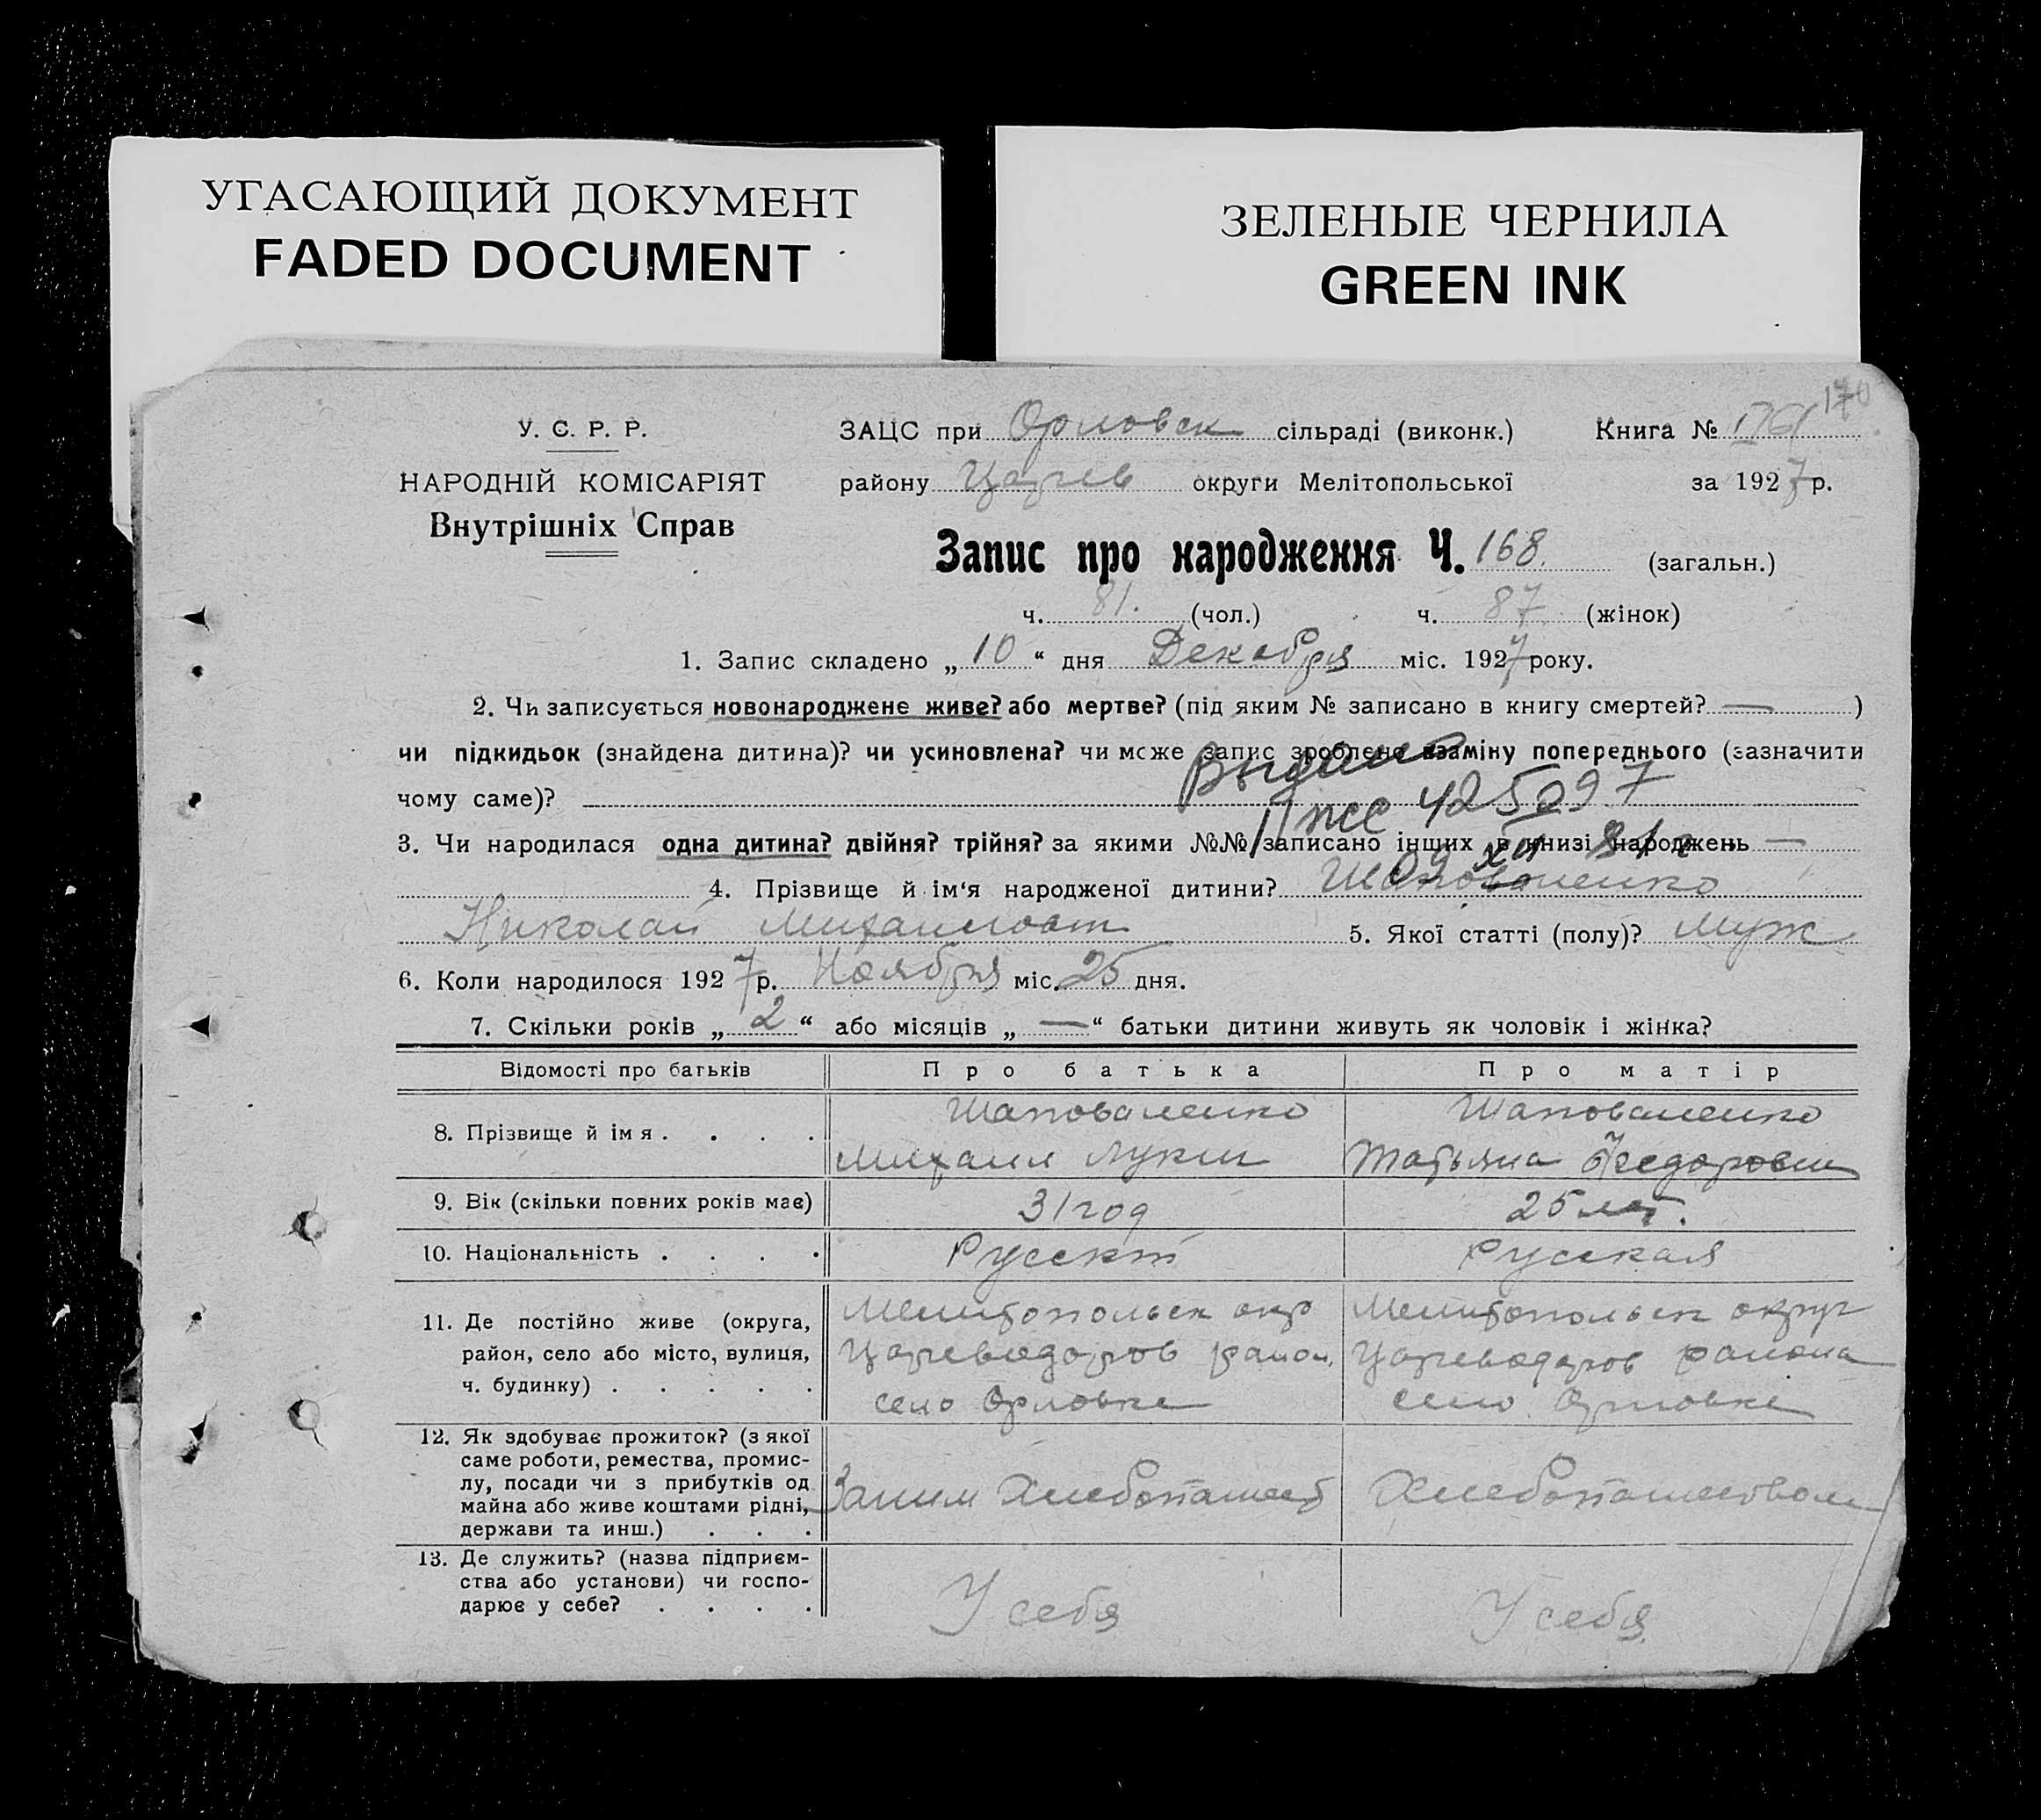 УГАСАЮЩИЙ ДОКУМЕНТ
FADED DOCUMENT
ЗЕЛЕНЫЕ ЧЕРНИЛА
GREEN INK
170
У. С. Р. Р.
НАРОДНІЙ КОМІСАРІЯТ
Внутрішніх Справ
ЗАЦС при Орловск сільраді (виконк.) Книга №
району Царев округи Мелітопольської за 1927 р.
Запис про народження Ч. 168. (загальн.)
ч. 81. (чол.) ч. 87 (жінок)
1. Запис складено „10“ дня Декабря міс. 1927 року.
2. Чи записується новонароджене живе? або мертве? (під яким № записано в книгу смертей? — )
чи підкидьок (знайдена дитина)? чи усиновлена? чи може запис зроблено взаміну попереднього (зазначити
чому саме)?
425097
3. Чи народилася одна дитина? двійня? трійня? за якими №№ записано інших в книзі народжень —
4. Прізвище й ім‘я народженої дитини? Шаповаленко
Николай 5. Якої статті (полу)? Муж
6. Коли народилося 1927 р. Ноября міс. 25 дня.
7. Скільки років „2“ або місяців „—“ батьки дитини живуть як чоловік і жінка?
Відомості про батьків Про батька Про матір
8. Прізвище й імя . . . . Шаповаленко Шаповаленко
Михаил Лукич Татьяна Феодоровна
9. Вік (скільки повних років має) 31 год 25 лет.
10. Національність . . . . Русский Русская
11. Де постійно живе (округа, Мелитопольск окр Мелитопольск округ
район, село або місто, вулиця, Царевадаров район. Царевадаров района
ч. будинку) . . . . . село Орловке село Орловке
12. Як здобуває прожиток? (з якої
саме роботи, ремества, промис-
лу, посади чи з прибутків од
майна або живе коштами рідні, Заним Хлебопашест Хлебопашеством
держави та инш.) . . .
13. Де служить? (назва підприєм-
ства або установи) чи госпо-
дарює у себе? . . . . У себя У себя